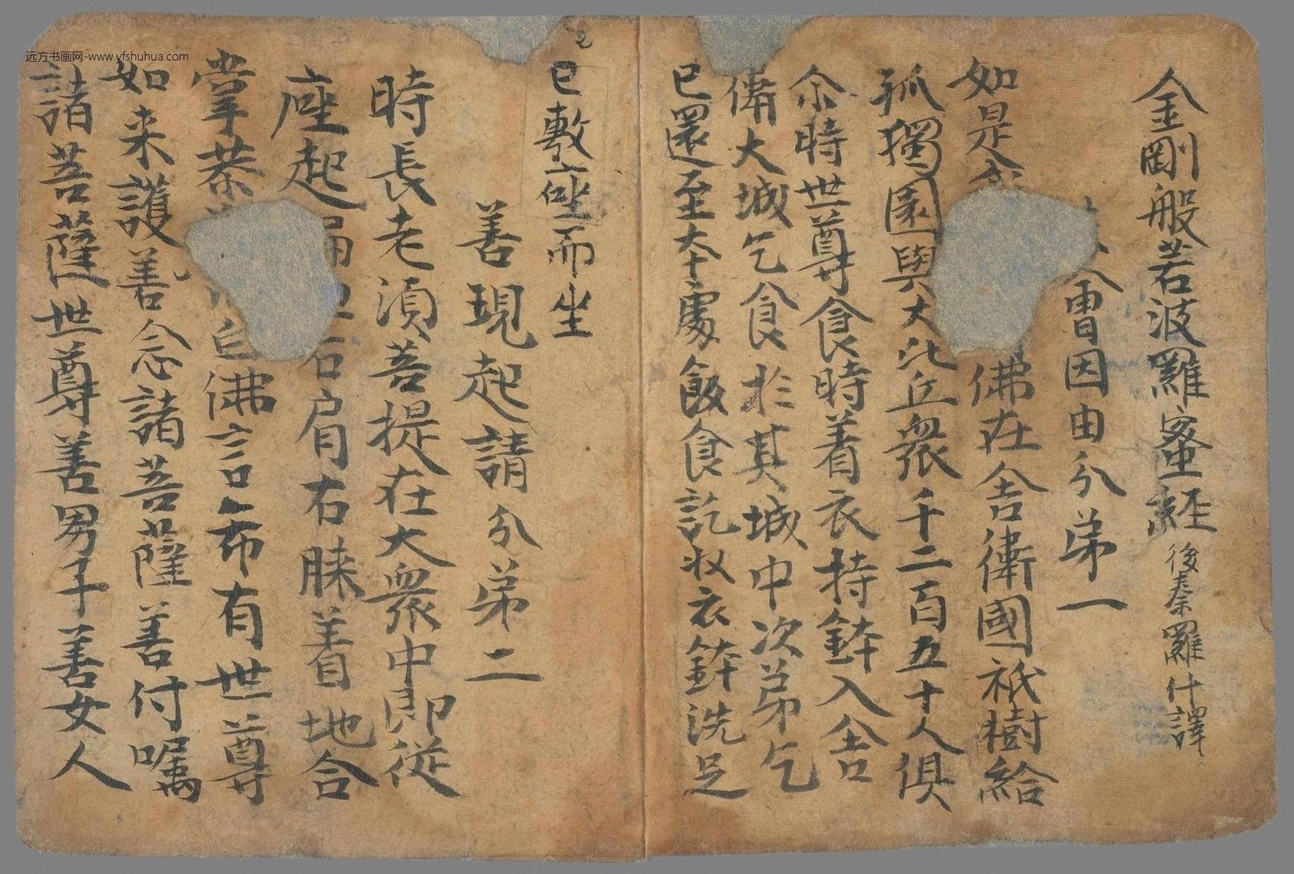 远方书画网-www.yfshuhua.com
金剛般若波羅蜜經 後秦羅什譯
會因由分弟一
如是 佛在舍衛國祇樹給
孤獨園與大比丘衆千二百五十人俱
尒時世尊食時着衣持鉢入舍
衛大城乞食於其城中次弟乞
已還至本處飯食訖收衣鉢洗足
已敷座而坐
善現起請分弟二
時長老須菩提在大衆中即從
座起 右肩右膝着地合
掌恭 白佛言希有世尊
如来護善念諸菩薩善付嘱
諸菩薩世尊善男子善女人